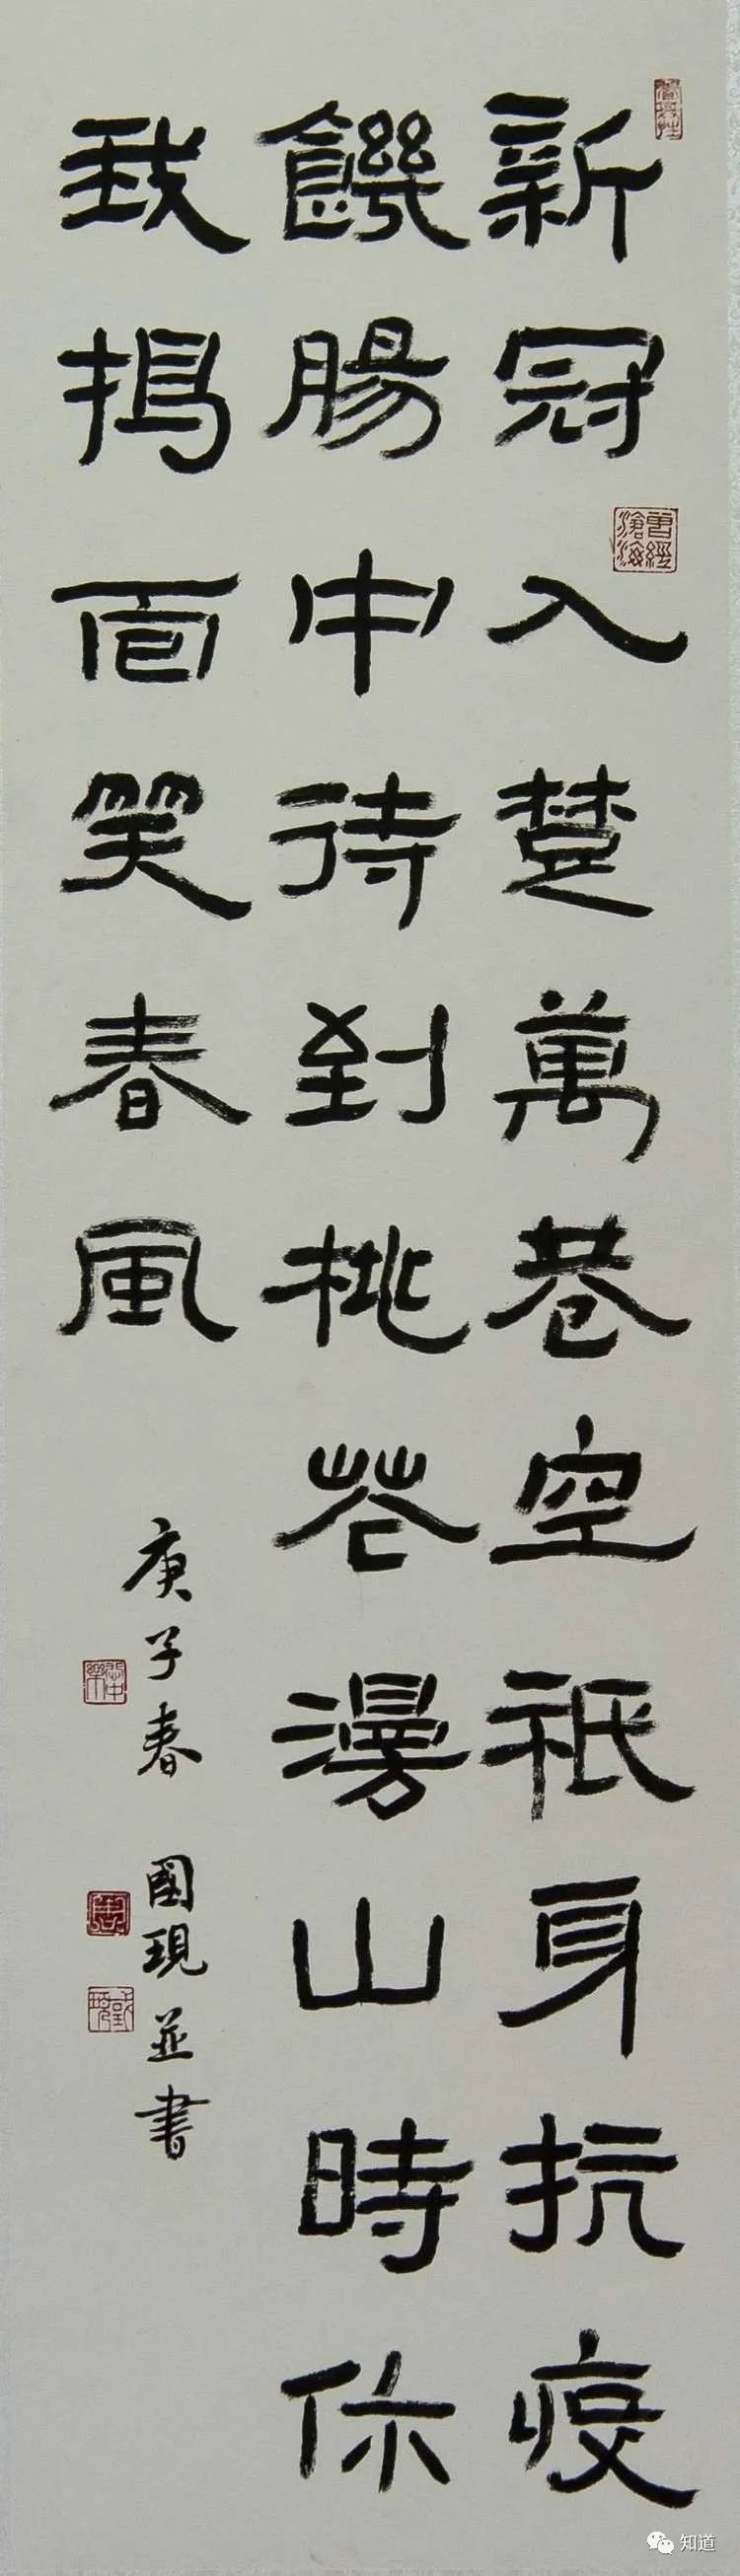 新冠入楚萬巷空祇身抗疫
饑腸中待到桃花漫山時你
我揭面笑春風
庚子春 國現並書
曾經滄海
知道